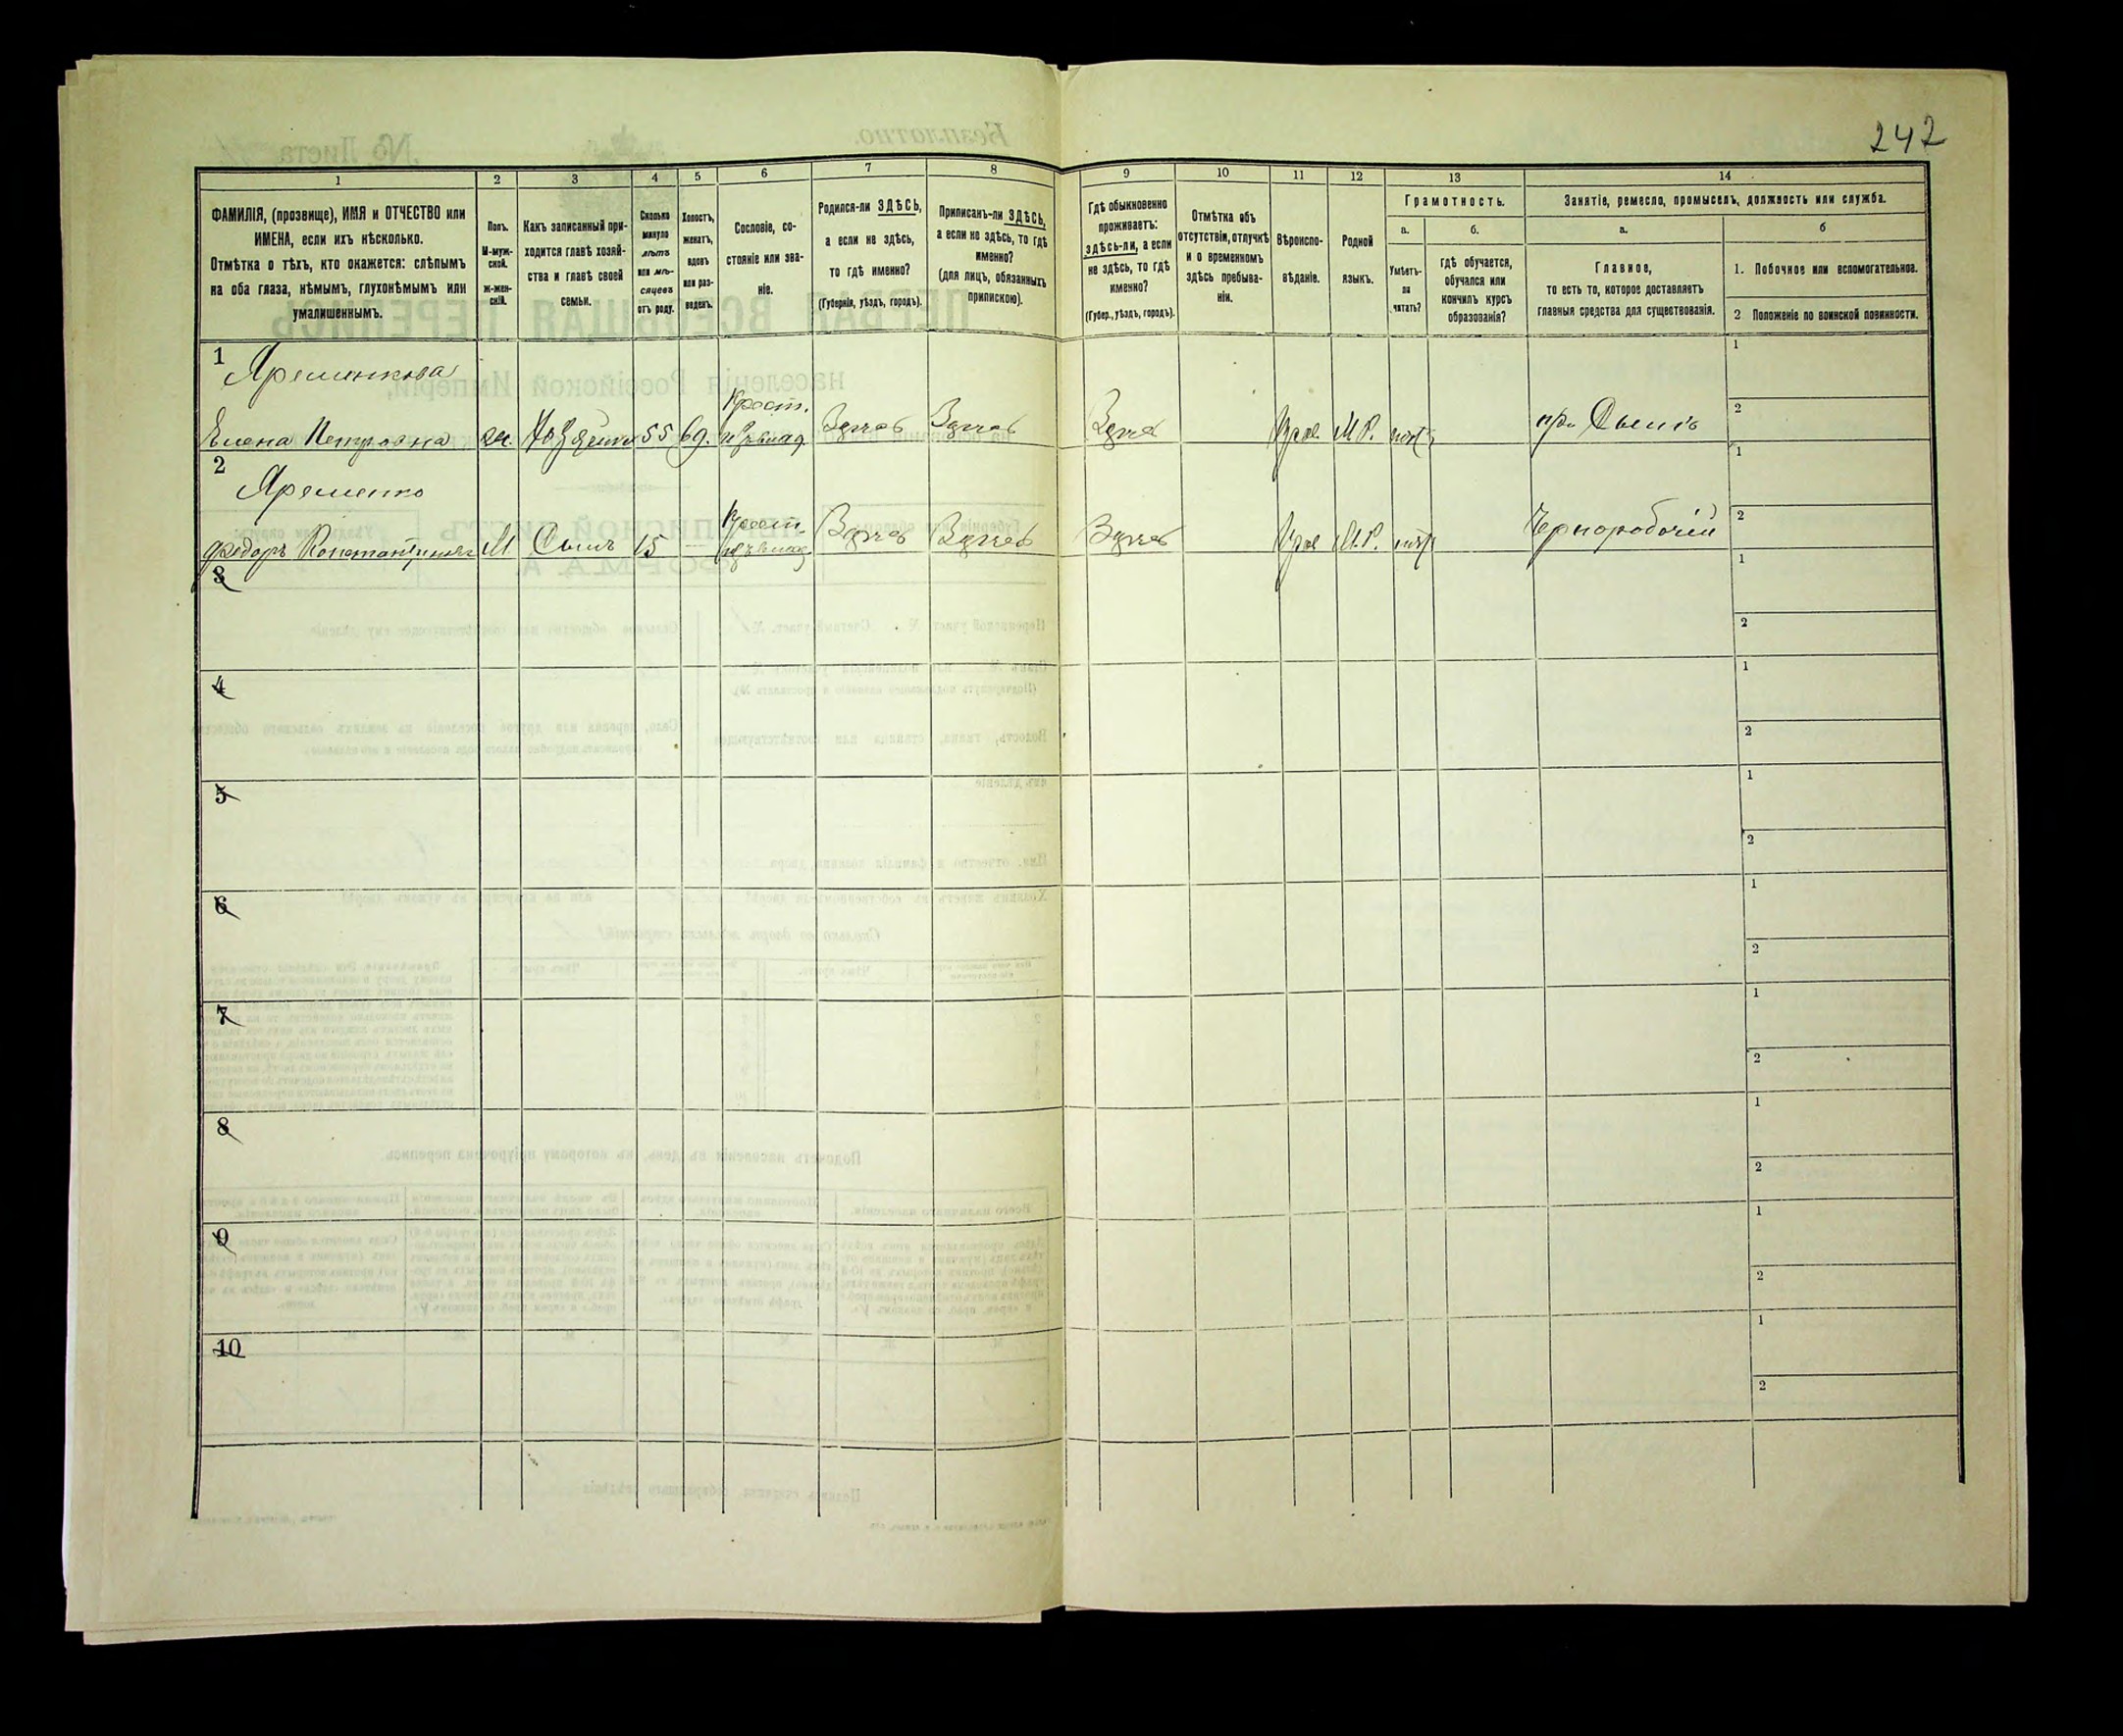 242
1
2
3
4
5
6
7
8
9
10
11
12
13
14
ФАМИЛІЯ, (прозвище), ИМЯ и ОТЧЕСТВО или
ИМЕНА, если ихъ нѣсколько.
Отмѣтка о тѣхъ, кто окажется: слѣпымъ
на оба глаза, нѣмымъ, глухонѣмымъ или
умалишеннымъ.
Полъ.
М-муж-
ской.
ж-жен-
скій.
Какъ записанный при-
ходится главѣ хозяй-
ства и главѣ своей
семьи.
Сколько
минуло
лѣтъ
или мѣ-
сяцевъ
отъ роду.
Холостъ,
женатъ,
вдовъ
или раз-
веденъ.
Сословіе, со-
стояніе или зва-
ніе.
Родился-ли ЗДѢСЬ,
а если не здѣсь,
то гдѣ именно?
(Губернія, уѣздъ, городъ).
Приписанъ-ли ЗДѢСЬ,
а если не здѣсь, то гдѣ
именно?
(для лицъ, обязанныхъ
припискою).
Гдѣ обыкновенно
проживаетъ:
здѣсь-ли, а если
не здѣсь, то гдѣ
именно?
(Губер., уѣздъ, городъ).
Отмѣтка объ
отсутствіи, отлучкѣ
и о временномъ
здѣсь пребыва-
ніи.
Вѣроиспо-
вѣданіе.
Родной
языкъ.
Грамотность.
а.
б.
Умѣетъ-
ли
читать?
гдѣ обучается,
обучался или
кончилъ курсъ
образованія?
Занятіе, ремесло, промыселъ, должность или служба.
а.
б
Главное,
то есть то, которое доставляетъ
главныя средства для существованія.
1. Побочное или вспомогательное.
2 Положеніе по воинской повинности.
1
Яременкова
Елена Петровна
55
Крест.
Здѣсь Здѣсь Здѣсь
Прав. М.Р. нѣтъ
при Сынѣ
1
2
2
Яременко
Федоръ Константиновъ
М Сынъ 15
Крест.
Здѣсь Здѣсь Здѣсь
Прав. М.Р. нѣтъ
Чернорабочій
1
2
3
1
2
4
1
2
5
1
2
6
1
2
7
1
2
8
1
2
9
1
2
10
1
2